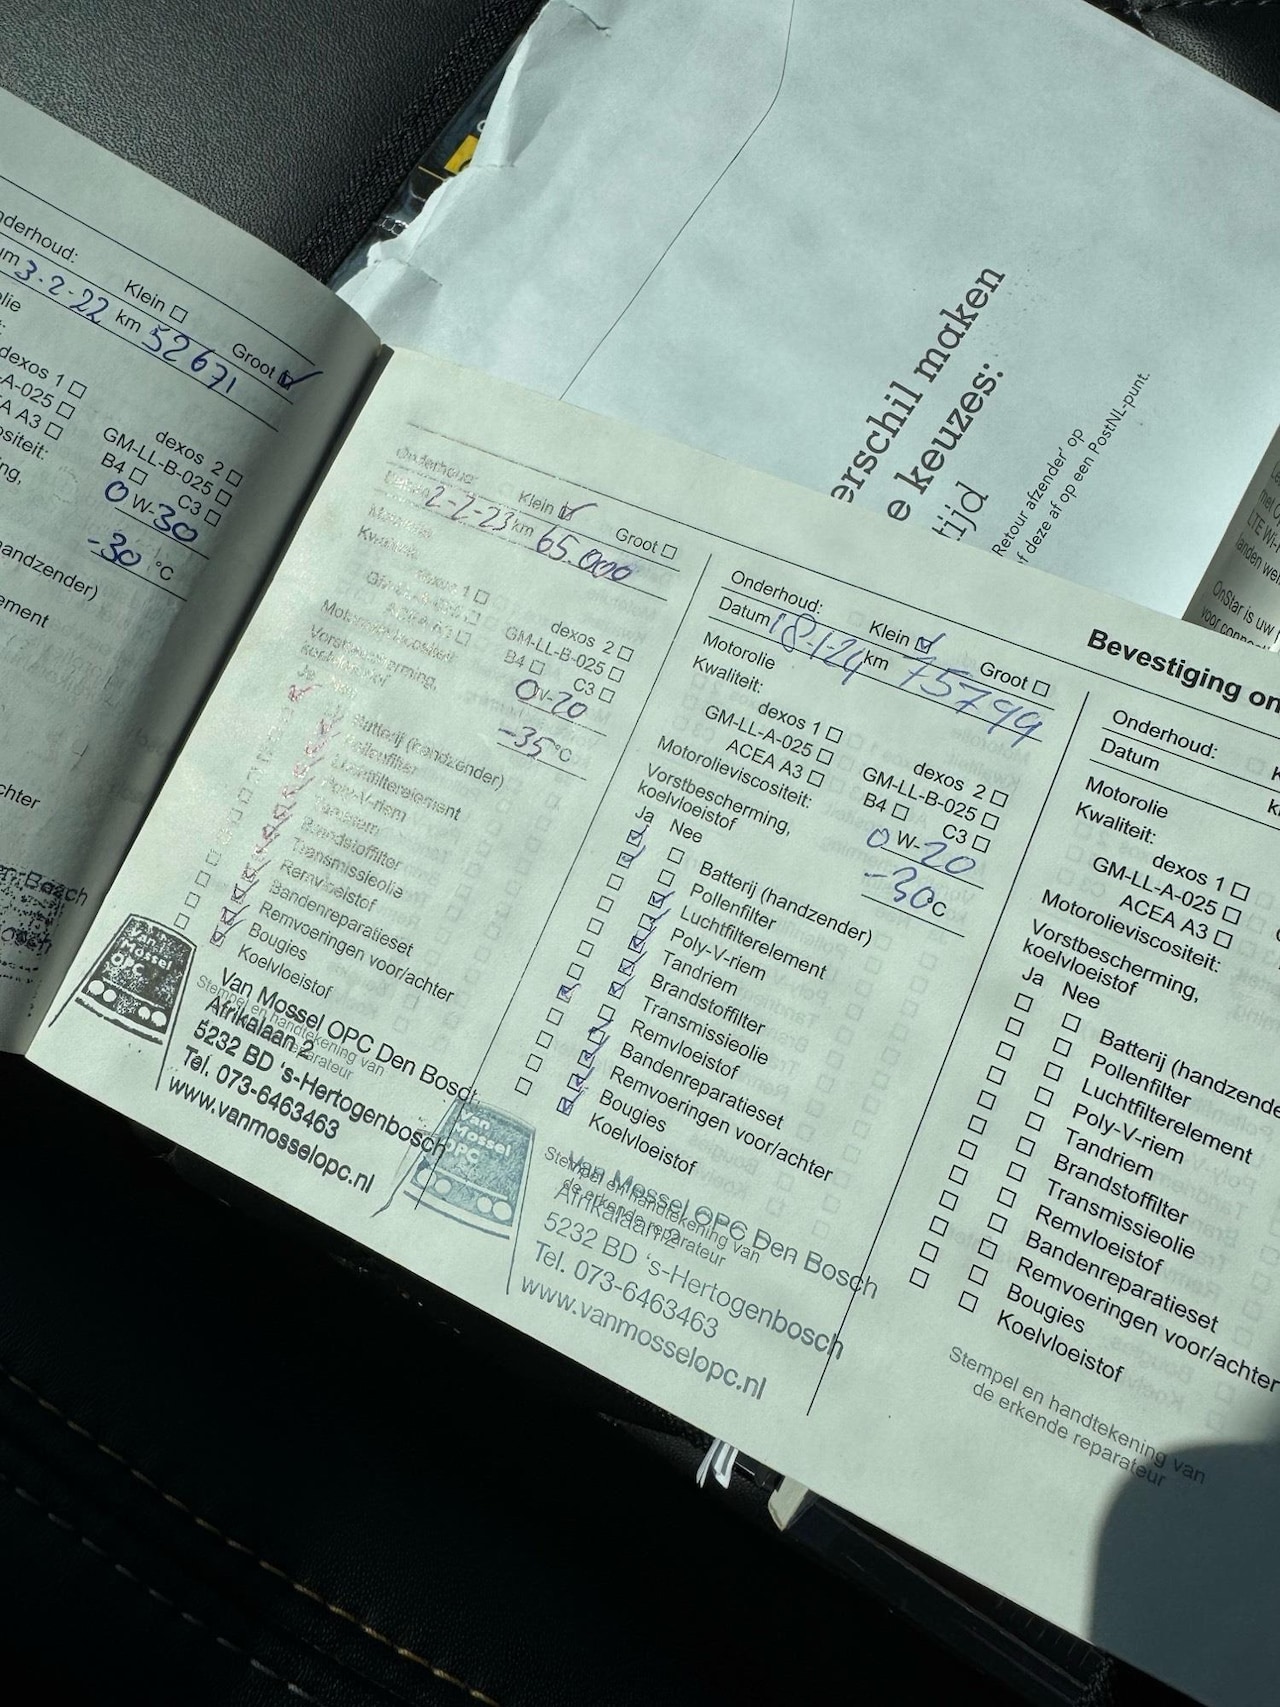 nderhoud:
Klein ☐
Groot ☑
um 3-2-22 km 52671
olie
dexos 1 ☐
dexos 2 ☐
-A-025 ☐
GM-LL-B-025 ☐
EA A3 ☐
B4 ☐ C3 ☐
ositeit:
0 W-30
ing,
-30 °C
andzender)
ement
chter
Bosch
erschil maken
e keuzes:
tijd
Retour afzender' op
f deze af op een PostNL-punt.
LTE Wi-
landen wer
OnStar is uw
voor conne
Onderhoud: Klein ☑ Groot ☐
Datum 2-2-23 km 65.000
Motorolie
Kwaliteit:
dexos 1 ☐ dexos 2 ☐
GM-LL-A-025 ☐ GM-LL-B-025 ☐
ACEA A3 ☐ B4 ☐ C3 ☐
Motorolieviscositeit: 0 W-20
Vorstbescherming,
koelvloeistof -35 °C
Ja Nee
Batterij (handzender)
Pollenfilter
Luchtfilterelement
Poly-V-riem
Tandriem
Brandstoffilter
Transmissieolie
Remvloeistof
Bandenreparatieset
Remvoeringen voor/achter
Bougies
Koelvloeistof
Stempel en handtekening van
de erkende reparateur
Van Mossel OPC
Van Mossel OPC Den Bosch
Afrikalaan 2
5232 BD 's-Hertogenbosch
Tel. 073-6463463
www.vanmosselopc.nl
Onderhoud: Klein ☑ Groot ☐
Datum 18-1-24 km 75799
Motorolie
Kwaliteit:
dexos 1 ☐ dexos 2 ☐
GM-LL-A-025 ☐ GM-LL-B-025 ☐
ACEA A3 ☐ B4 ☐ C3 ☐
Motorolieviscositeit: 0 W-20
Vorstbescherming,
koelvloeistof -30 °C
Ja Nee
Batterij (handzender)
Pollenfilter
Luchtfilterelement
Poly-V-riem
Tandriem
Brandstoffilter
Transmissieolie
Remvloeistof
Bandenreparatieset
Remvoeringen voor/achter
Bougies
Koelvloeistof
Stempel en handtekening van
de erkende reparateur
Van Mossel OPC
Van Mossel OPC Den Bosch
Afrikalaan 2
5232 BD 's-Hertogenbosch
Tel. 073-6463463
www.vanmosselopc.nl
Bevestiging on
Onderhoud: K
Datum k
Motorolie
Kwaliteit:
dexos 1 ☐
GM-LL-A-025 ☐
ACEA A3 ☐
Motorolieviscositeit:
Vorstbescherming,
koelvloeistof
Ja Nee
Batterij (handzende
Pollenfilter
Luchtfilterelement
Poly-V-riem
Tandriem
Brandstoffilter
Transmissieolie
Remvloeistof
Bandenreparatieset
Remvoeringen voor/achter
Bougies
Koelvloeistof
Stempel en handtekening van
de erkende reparateur